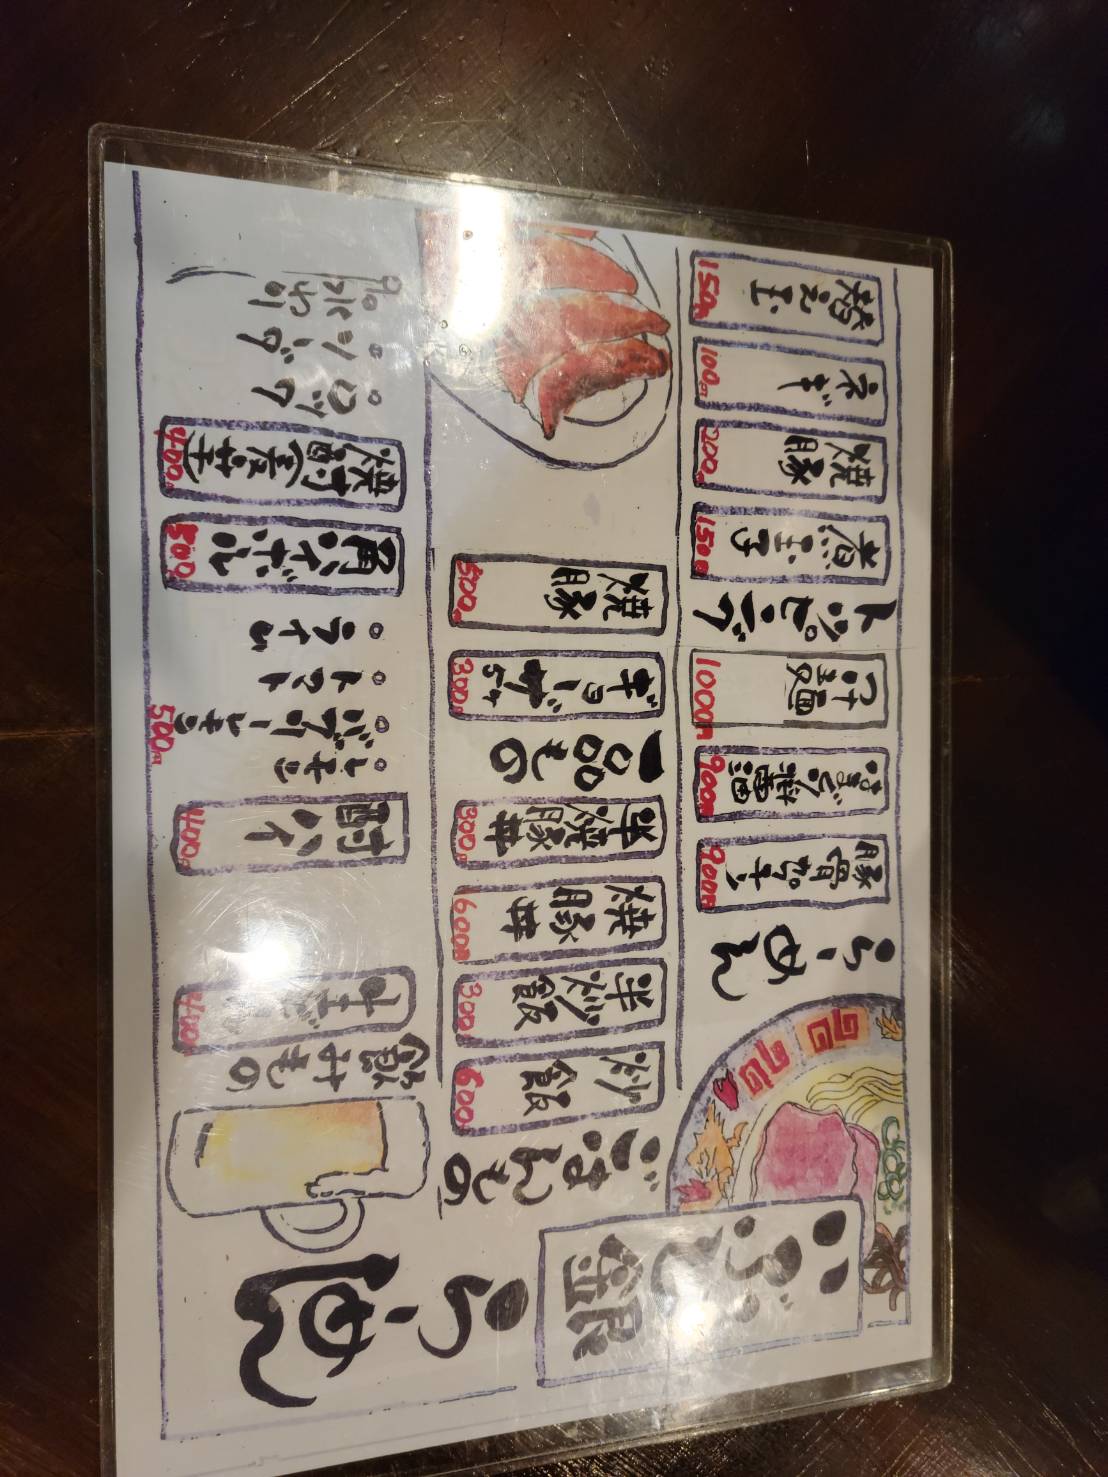 いぶし銀
らーめん
らーめん
豚骨
900円
醤油
900円
つけ麺
1000円
トッピング
煮玉子
150円
焼豚
200円
ネギ
100円
替え玉
150円
ごはんもの
炒飯
600円
半炒飯
300円
焼豚丼
600円
半焼豚丼
300円
一品もの
ギョーザ5ケ
300円
焼豚
500円
飲みもの
生ビール
400円
酎ハイ
400円
レモン
500円
トマト
ライム
角ハイボール
500円
焼酎(麦芋)
400円
ロック
ソーダ
水わり